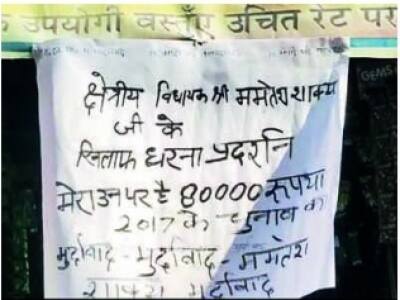 उपयोगी वस्तुएँ उचित रेट पर
क्षेत्रीय विधायक श्री ममतेश शाक्य
जी के
खिलाफ धरना प्रदर्शन
मेरा उन पर है 80000 रूपया
2017 के चुनाव का
मुर्दाबाद - मुर्दाबाद - ममतेश
शाक्य मुर्दाबाद
GEMS